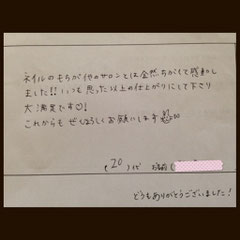 ネイルのもちが他のサロンとは全然ちがくて感動し
ました!! いつも思った以上の仕上がりにして下さり
大満足です♡!
これからもぜひよろしくお願いします
(20)代 お名前(
どうもありがとうございました!